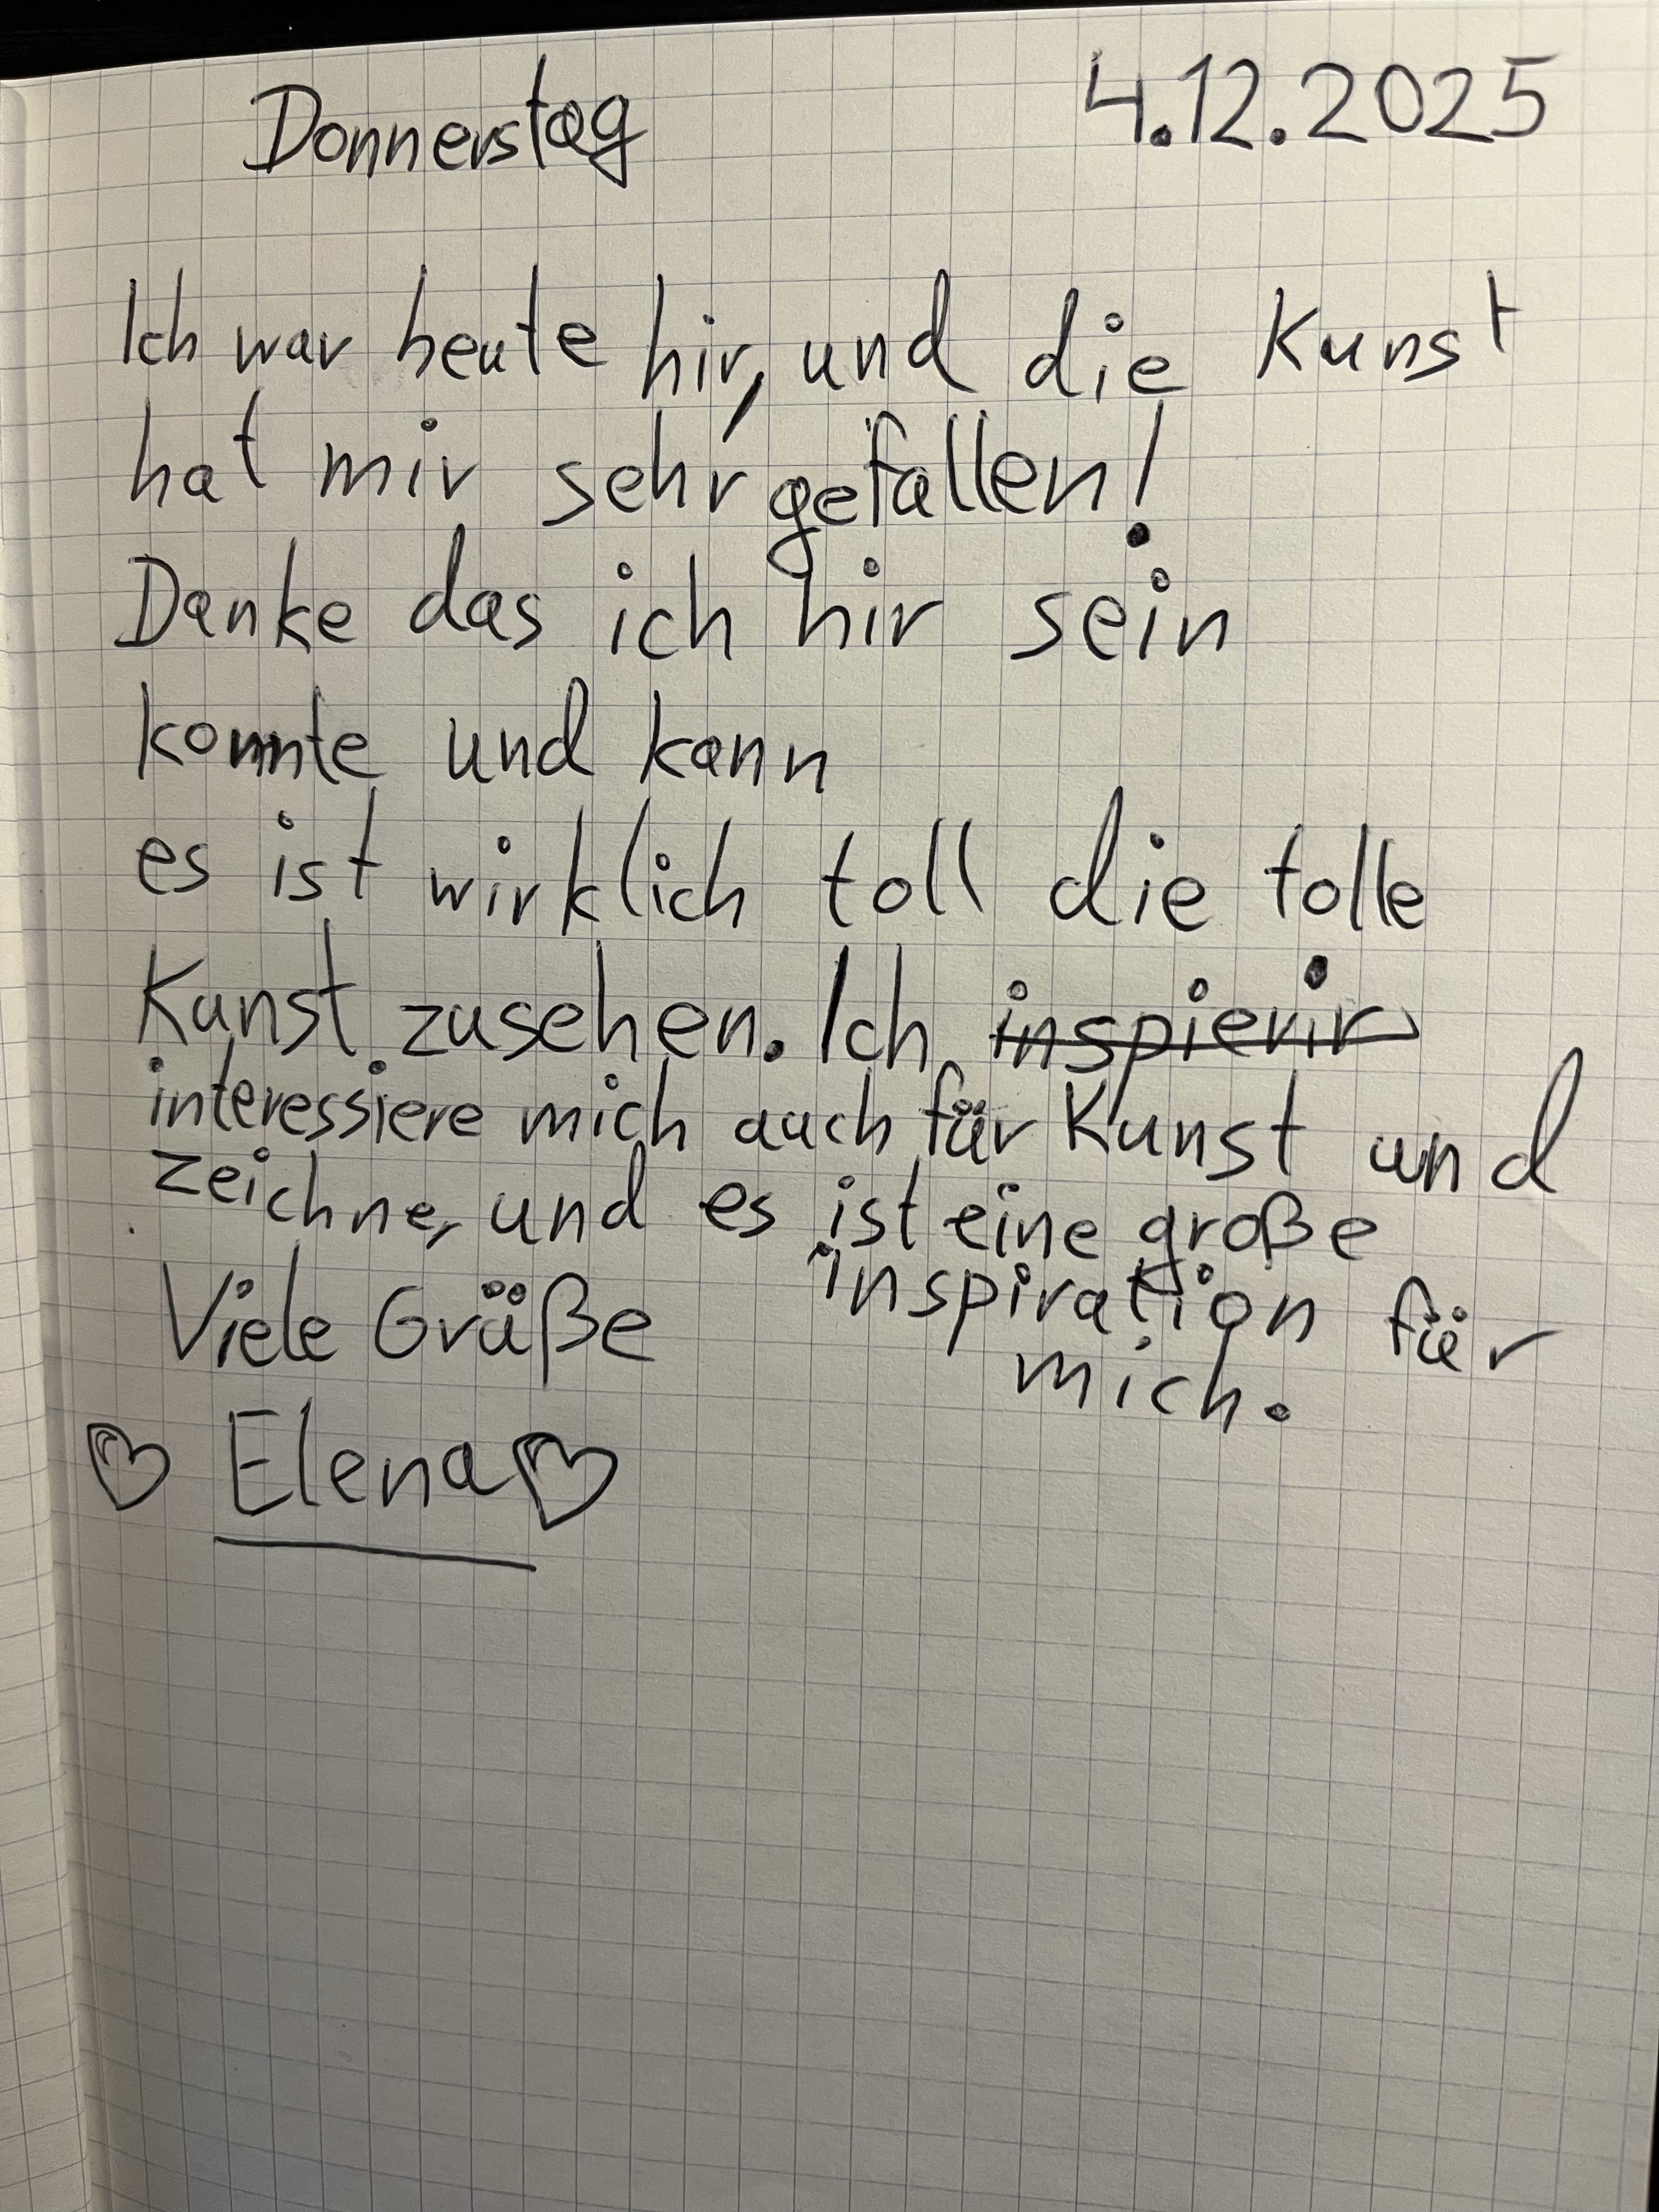 Donnerstag 4.12.2025
Ich war heute hir, und die Kunst
hat mir sehr gefallen!
Danke das ich hir sein
konnte und kann
es ist wirklich toll die tolle
Kunst zusehen. Ich inspierir
interessiere mich auch für Kunst und
zeichne, und es ist eine große
inspiration für
mich.
Viele Grüße
♡ Elena ♡